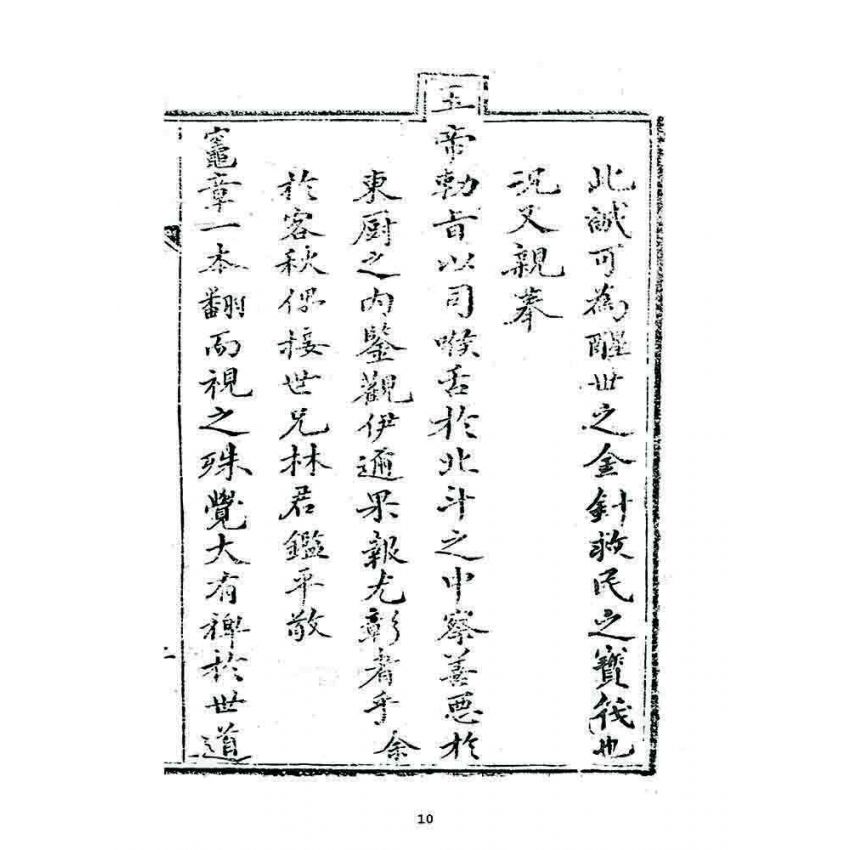 此誠可為醒世之金針救民之寶筏也
况又親奉
玉帝勅旨以司喉舌於北斗之中察善惡於
東厨之內鑒觀伊邇果報尤彰者乎余
於客秋偶接世兄林君鑑平敬
竈章一本翻而視之殊覺大有裨於世道
10